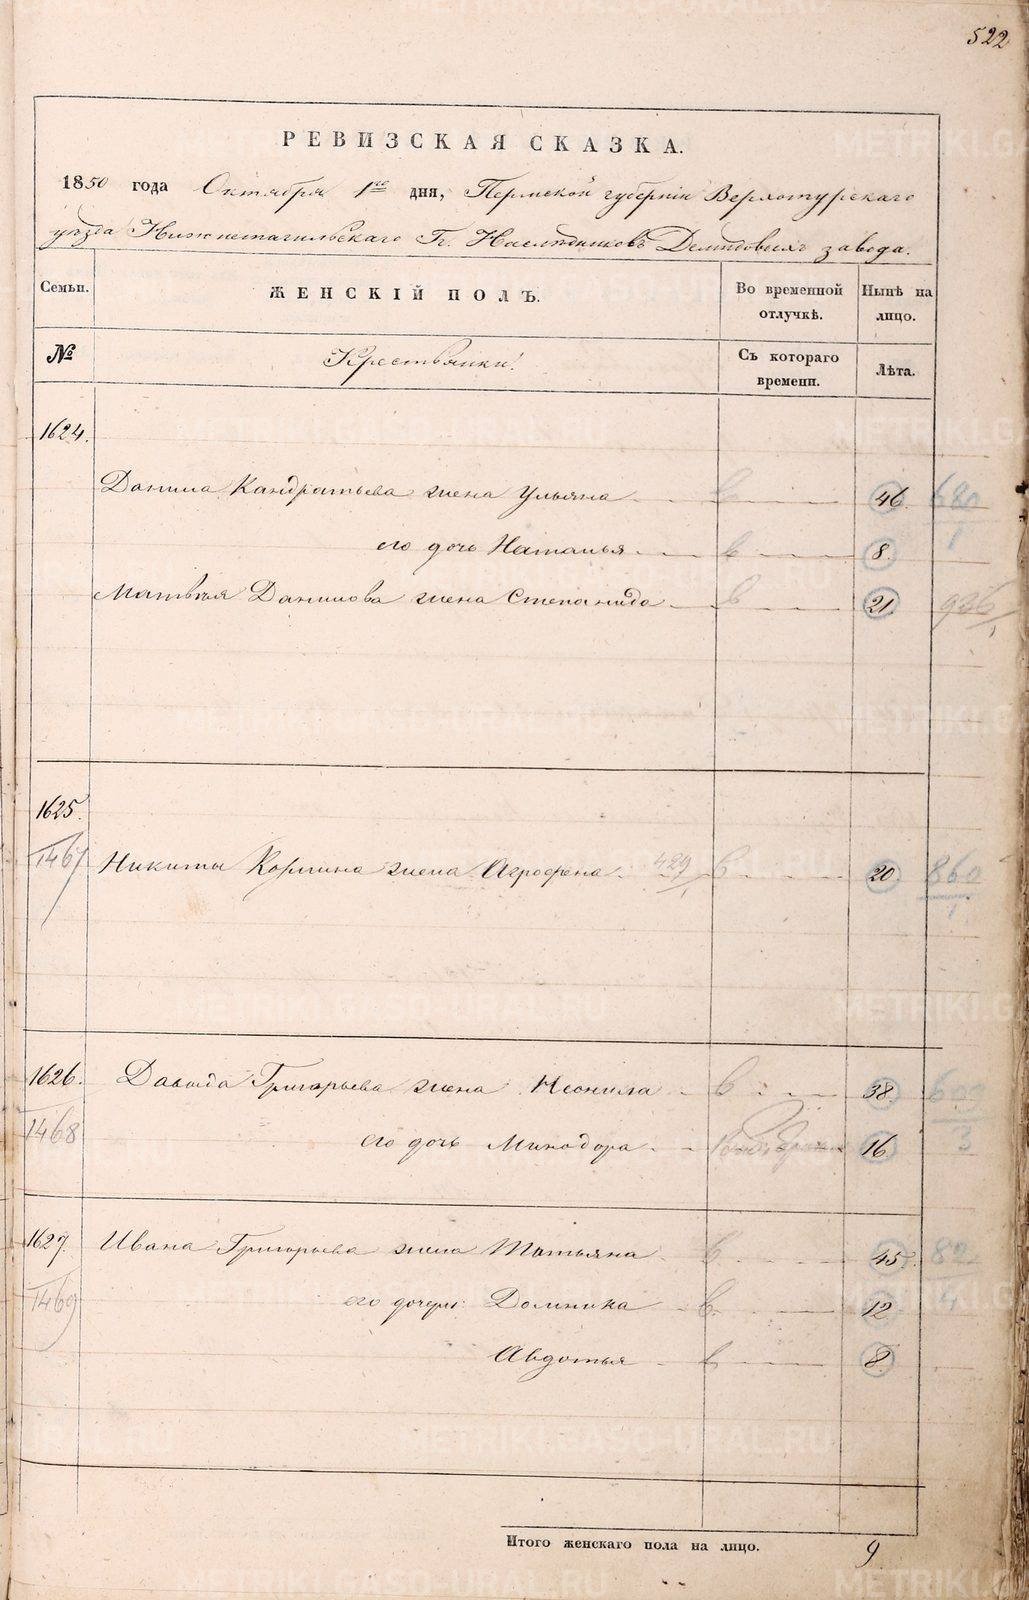 522
РЕВИЗСКАЯ СКАЗКА.
1850 года Октября 1го дня, Пермской губернии Верхотурскаго
уѣзда Нижнетагильскаго Гг. Наслѣдниковъ Демидовыхъ завода.
Семьи. ЖЕНСКІЙ ПОЛЪ. Во временной отлучкѣ. Нынѣ на лицо.
№ Крестьянки. Съ котораго времени. Лѣта.
1624.
Данила Кандратьева жена Ульяна 46 680/1
его дочь Наталья 8
Матвѣя Данилова жена Степанида 21 936/1
1625.
1467 Никиты Кармина жена Агрофена 429/1 20 860/1
1626. Давыда Григорьева жена Неонила 38. 609/3
1468 его дочь Минодора 16
1627. Ивана Григорьева жена Татьяна 45. 82/4
1469 его дочери: Домника 12
Авдотья 8
Итого женскаго пола на лицо. 9
METRIKI.GASO-URAL.RU